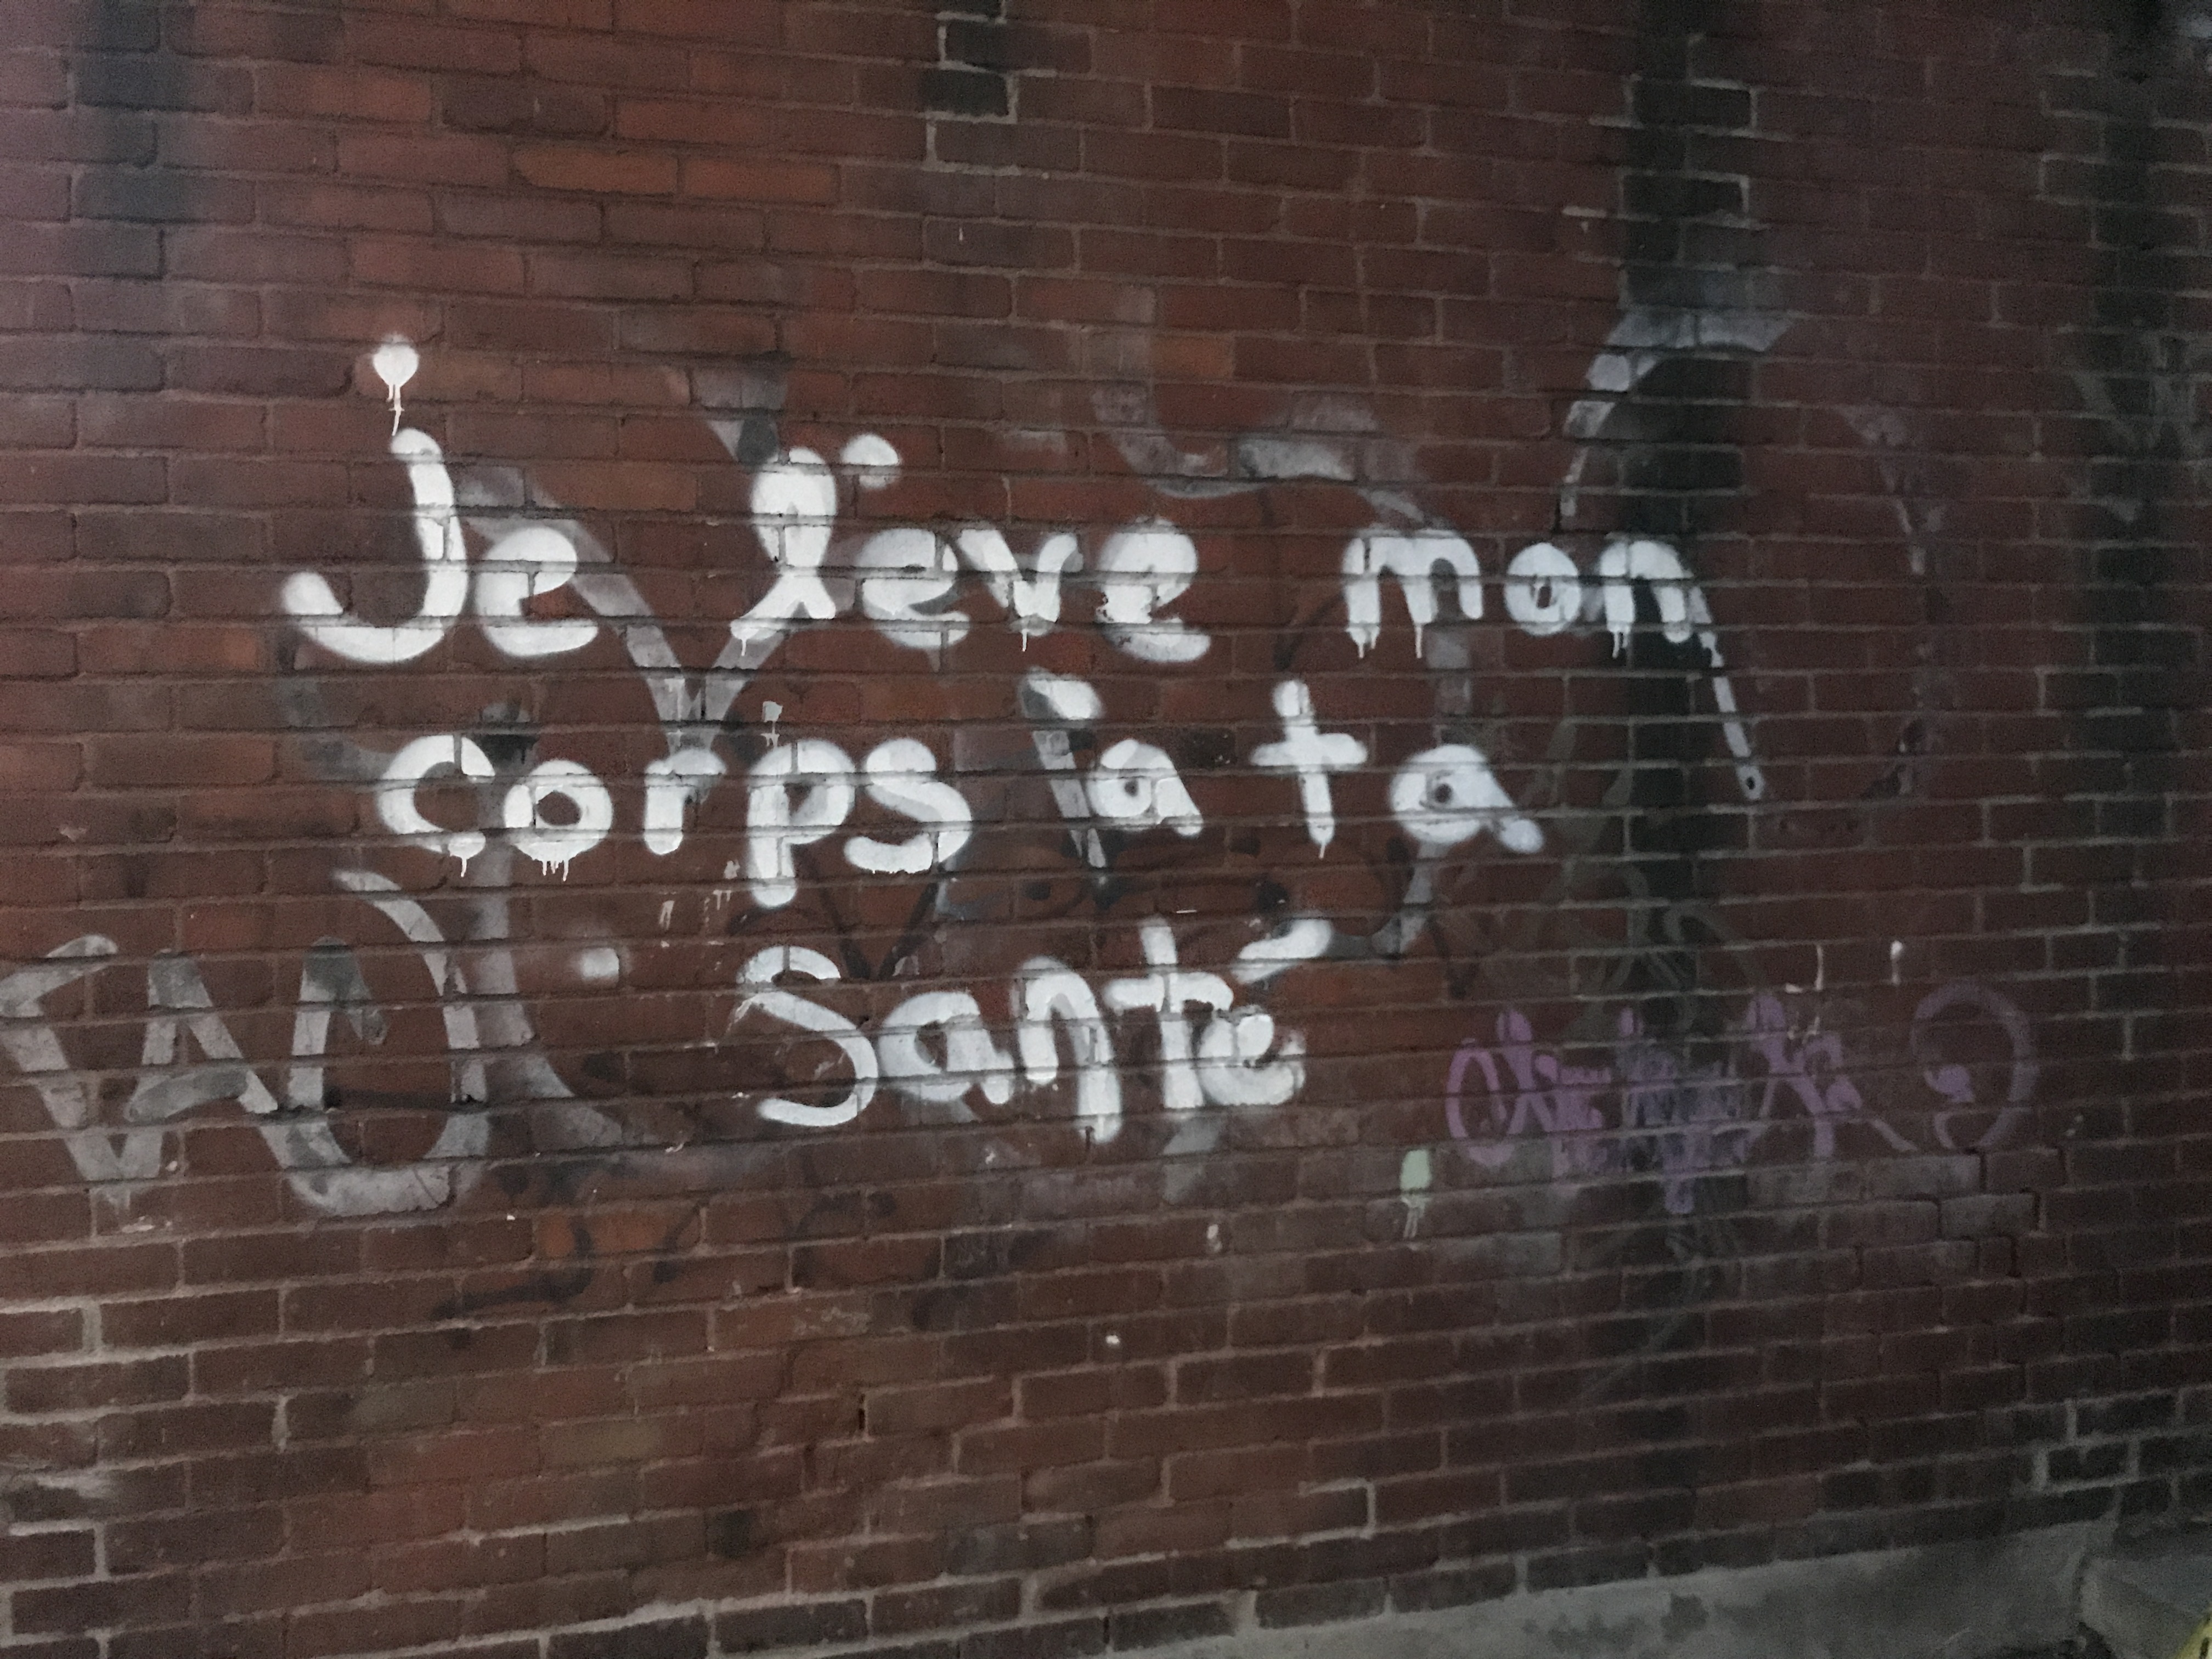 Je lève mon
corps à ta
santé